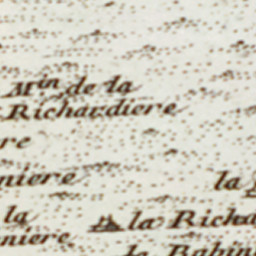 Min de la
Richardiere
re
niere
la
la
la Richa
niere
la Rabin